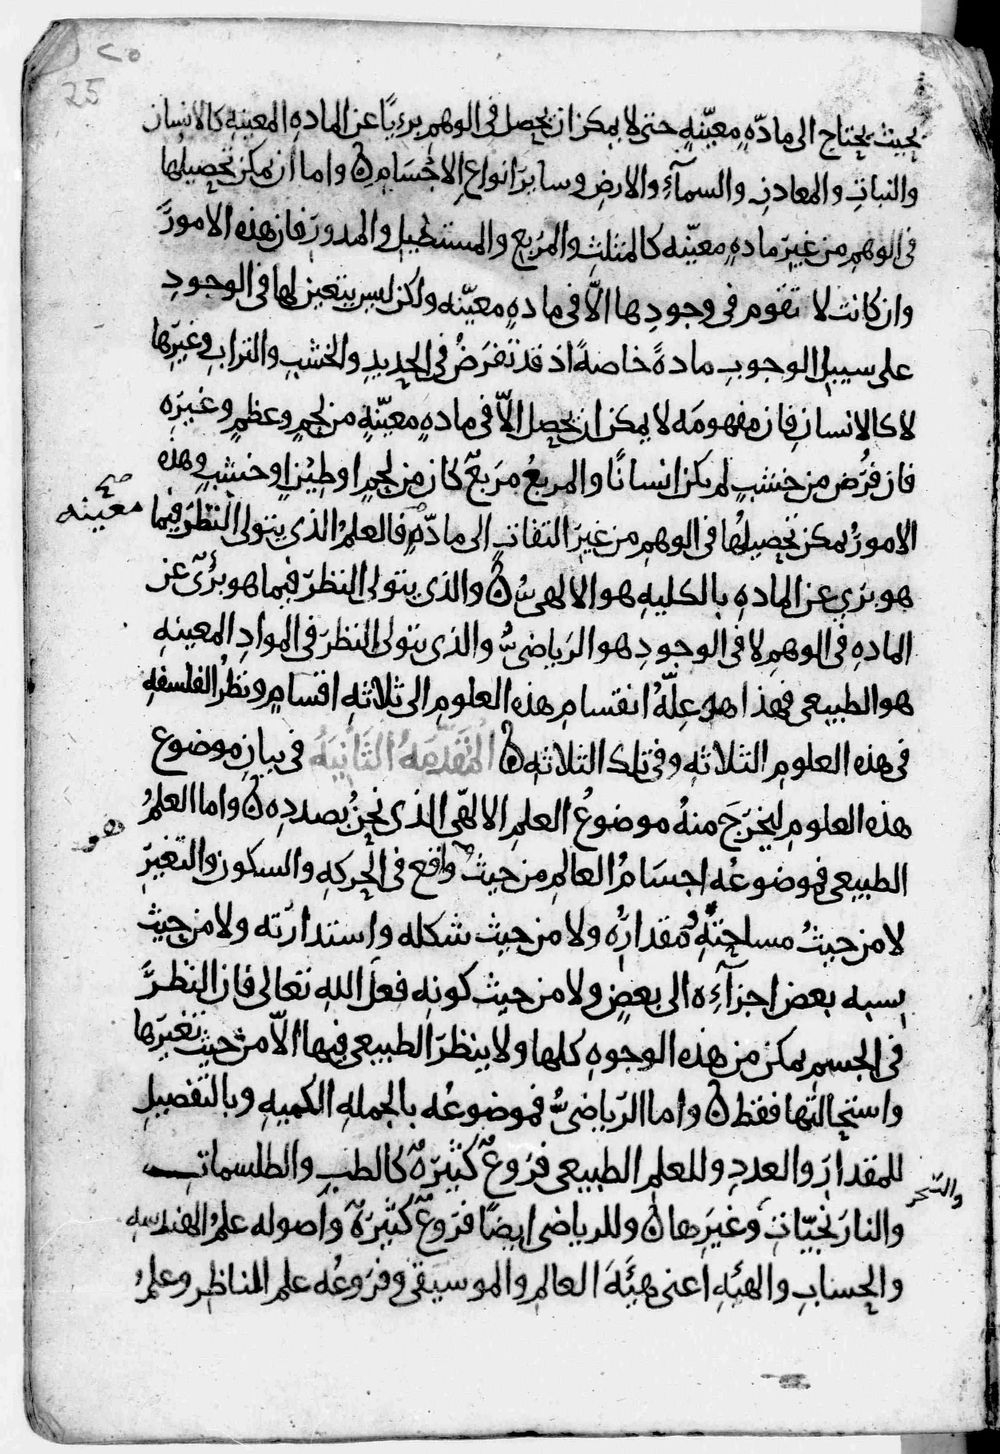 ٢٥
25
بحيث يحتاج الى مادّه معيّنهٍ حتى لا يمكن ان يحصل فى الوهم بريًا عن الماده المعينه كالانسان
والنبات والمعادن والسمآءِ والارض وساير انواع الاجسَام ۞ واما ان يمكن تحصيلها
فى الوهم من غير مادهٍ معيّنه كالمثلث والمربع والمستطيل والمدور فان هذه الامورَ
وان كانت لا تقوم فى وجودها الاّ فى مادهٍ معيّنه ولكن ليس يتعين لها فى الوجودِ
على سبيل الوجوب مادةً خاصةً اذ قد تفرَضُ فى الحديد والخشب والتراب وغيرها
لا كالانسان فان مفهومَه لا يمكن ان يحصل الاّ فى مادهٍ معيّنهٍ من لحمٍ وعظمٍ وغيره
فان فُرّض من خشبٍ لم يكن انسانًا والمربعُ مرَبعٌ كان من لحمٍ او طيْنٍ او خشبٍ وهذه
الامورُ يمكن تحصيلُها فى الوهم من غير التفات الى مادّةٍ فالعلمُ الذى يتولى النظرَ فيما
معينه صح
هو بَرى عن المادهِ بالكليهِ هو الالهىُّ ۞ والذى يتولى النظرَ فيما هو برىٌ عن
المادهِ فى الوهمِ لا فى الوجودِ هو الرياضىُّ والذى يتولى النظرَ فى المواد المعينهِ
هو الطبيعى فهذا هو عِلّهُ انقسام هذه العلومِ الى ثلاثهِ اقسامٍ ونظرُ الفلسفهِ
فى هذه العلومِ الثلاثهِ وفى تلك الثلاثهِ ۞ المُقَدّمَهُ الثّانيَهُ فى بيان موضوع
هذه العلوم ليخرَجَ منهُ موضوعُ العلم الالهى الذى نحنُ بصددِه ۞ واما العلمُ
الطبيعى فموضوعُه اجسَامُ العالم من حيث واقع فى الحركهِ والسكون والتغيرِ
هو
لا من حيثُ مساحتهِ ومقدارهُ ولا من حيث شكله واستدارته ولا من حيث
نسبه بعض اجزآءِه الى بعضٍ ولا من حيث كونه فعلَ الله تعالى فان النظرَ
فى الجسم يمكن من هذه الوجوهِ كلها ولا ينظرَ الطبيعى فيها الاّ من حيث تغيرها
واستحالتها فقط ۞ واما الرّياضىُّ فموضوعُه بالجملهِ الكميهِ وبالتفصيل
للمقدار والعددِ وللعلم الطبيعى فرَوعٌ كثيرَهٌ كالطب والطلسمات
والسّحر
والنارَنجيّات وغيرها ۞ وللرياضى ايضًا فرَوعٌ كثيرَهٌ واصوله علمُ الهندسه
والحسابِ والهيَهِ اعنى هيَهَ العالمِ والموسيقى وفروعُه علم المناظرِ وعلمُ